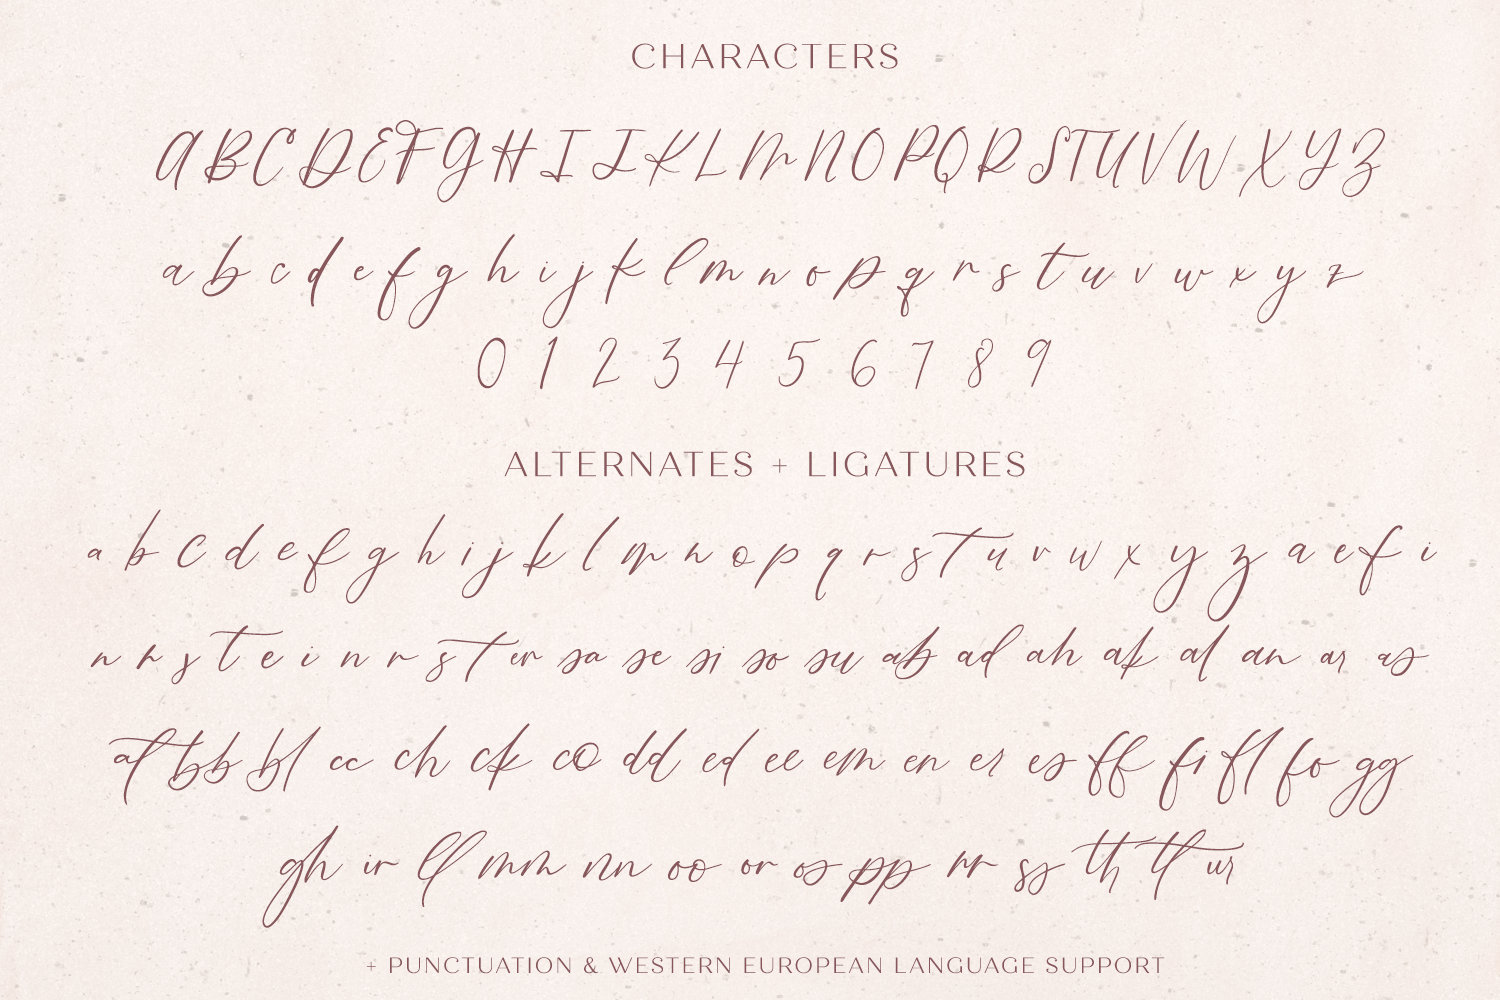 CHARACTERS
A B C D E F G H I J K L M N O P Q R S T U V W X Y Z
a b c d e f g h i j k l m n o p q r s t u v w x y z
0 1 2 3 4 5 6 7 8 9
ALTERNATES + LIGATURES
a b c d e f g h i j k l m n o p q r s t u v w x y z a e f i
n r s t e i n r s t er sa se si so su ab ad ah ak al an ar as
at bb bl cc ch ck co dd ed ee em en er es ff fi fl fo gg
gh ir ll mm nn oo or os pp rr ss th tt ur
+ PUNCTUATION & WESTERN EUROPEAN LANGUAGE SUPPORT